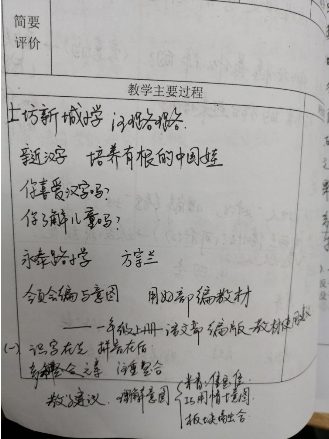 简要
评价
教学主要过程
上坊新城小学 汪璐璐
亲近汉字 培养有根的中国娃
你喜爱汉字吗?
你了解儿童吗?
永泰路小学 方字兰
领会编写意图 用好部编教材
——一年级上册语文部编版教材使用
(一) 识字在先 拼音在后
整合 注重整合
教学建议 理解意图
巧用情境图
板块融合